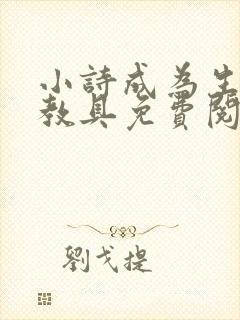 小詩成為生
教具免費閱
劉戈提